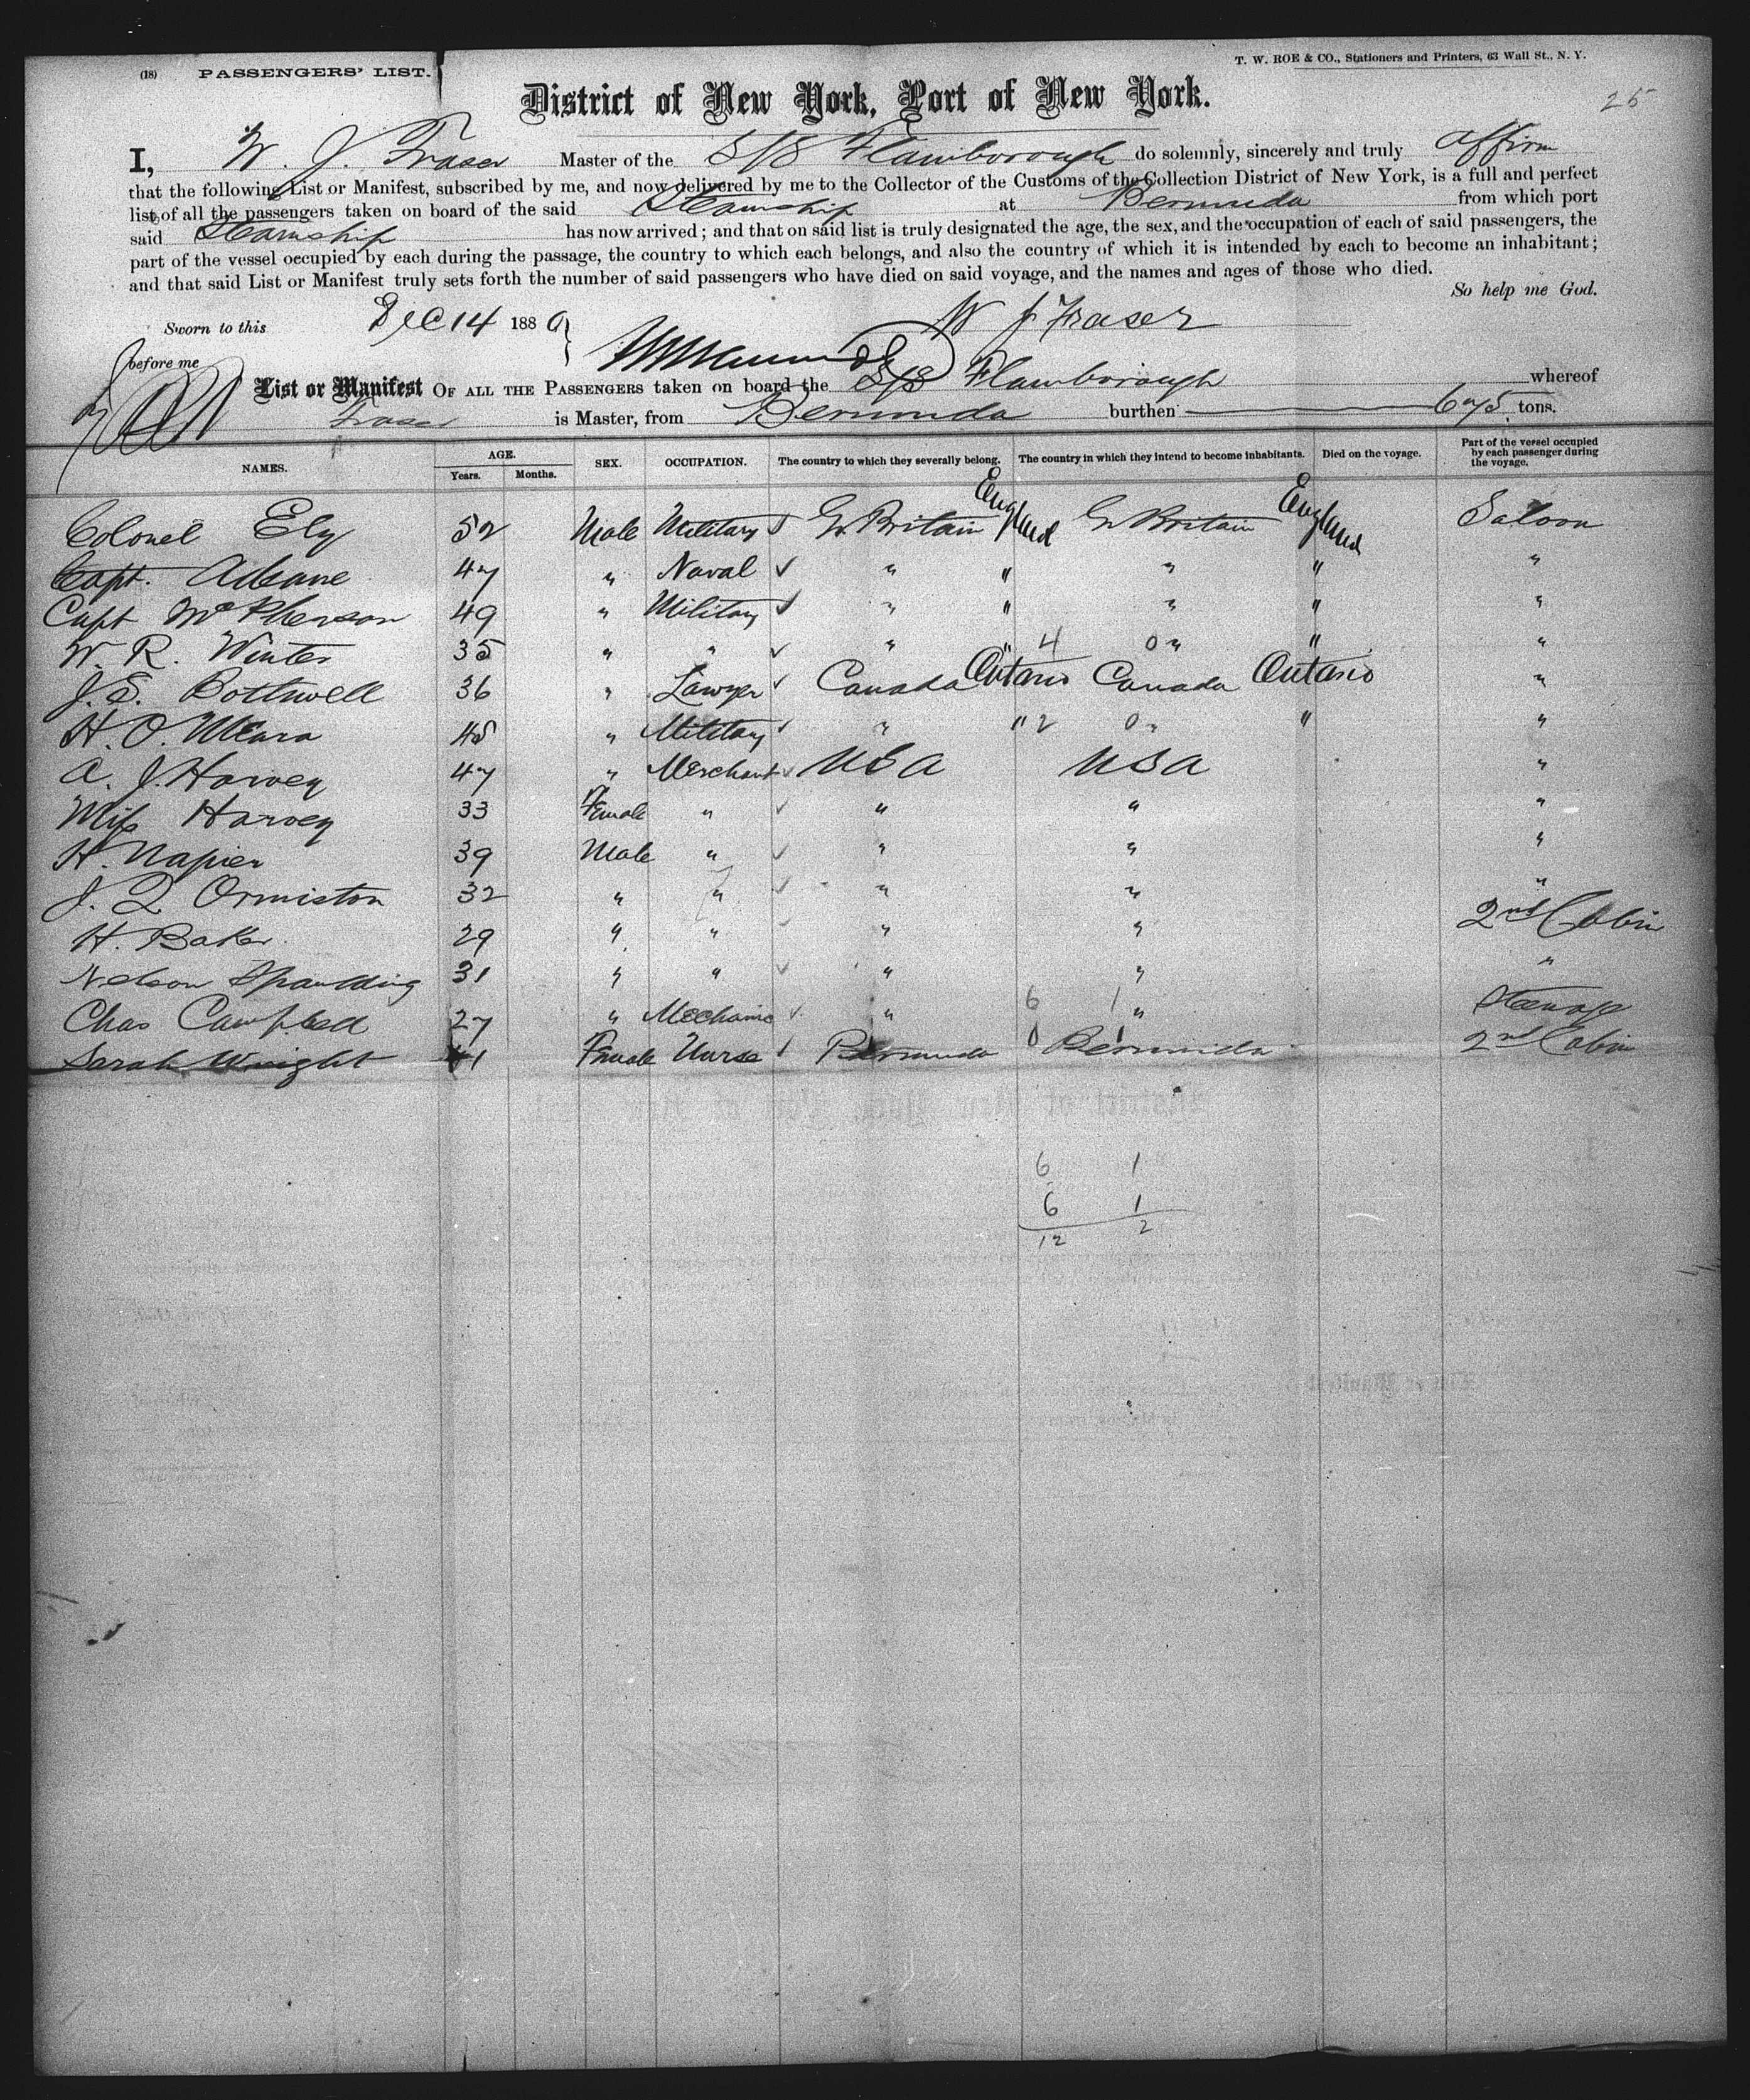 (18) PASSENGERS' LIST.
T. W. ROE & CO., Stationers and Printers, 63 Wall St., N. Y.
25
District of New York, Port of New York.
I, W. J. Fraser Master of the S/S Flamborough do solemnly, sincerely and truly affirm
that the following List or Manifest, subscribed by me, and now delivered by me to the Collector of the Customs of the Collection District of New York, is a full and perfect
list of all the passengers taken on board of the said Steamship at Bermuda from which port
said Steamship has now arrived; and that on said list is truly designated the age, the sex, and the occupation of each of said passengers, the
part of the vessel occupied by each during the passage, the country to which each belongs, and also the country of which it is intended by each to become an inhabitant;
and that said List or Manifest truly sets forth the number of said passengers who have died on said voyage, and the names and ages of those who died.
So help me God.
Sworn to this Dec 14 1889 W J Fraser
before me
List or Manifest OF ALL THE PASSENGERS taken on board the S/S Flamborough whereof
Fraser is Master, from Bermuda burthen 675 tons.
NAMES. AGE. Years. Months. SEX. OCCUPATION. The country to which they severally belong. The country in which they intend to become inhabitants. Died on the voyage. Part of the vessel occupied by each passenger during the voyage.
Colonel Ely 52 Male Military Gt Britain England Gt Britain England Saloon
Capt. 47 " Naval " " " " "
Capt McPherson 49 " Military " " " " "
W. R. Winter 35 " " " " 4 0 " " "
J. E. Bothwell 36 " Lawyer Canada Ontario Canada Ontario "
H. O. Meara 45 " Military " " 2 0 " " "
A. J. Harvey 47 " Merchant USA USA "
Miss Harvey 33 Female " " " "
H. Napier 39 Male " " " "
J. Q. Ormiston 32 " " " " "
H. Baker 29 " " " " 2nd Cabin
Nelson Spaulding 31 " " " " "
Chas Campbell 27 " Mechanic " 6 1 " Steerage
Sarah Wright 41 Female Nurse Bermuda 0 1 Bermuda 2nd Cabin
6 1
6 1
12 2